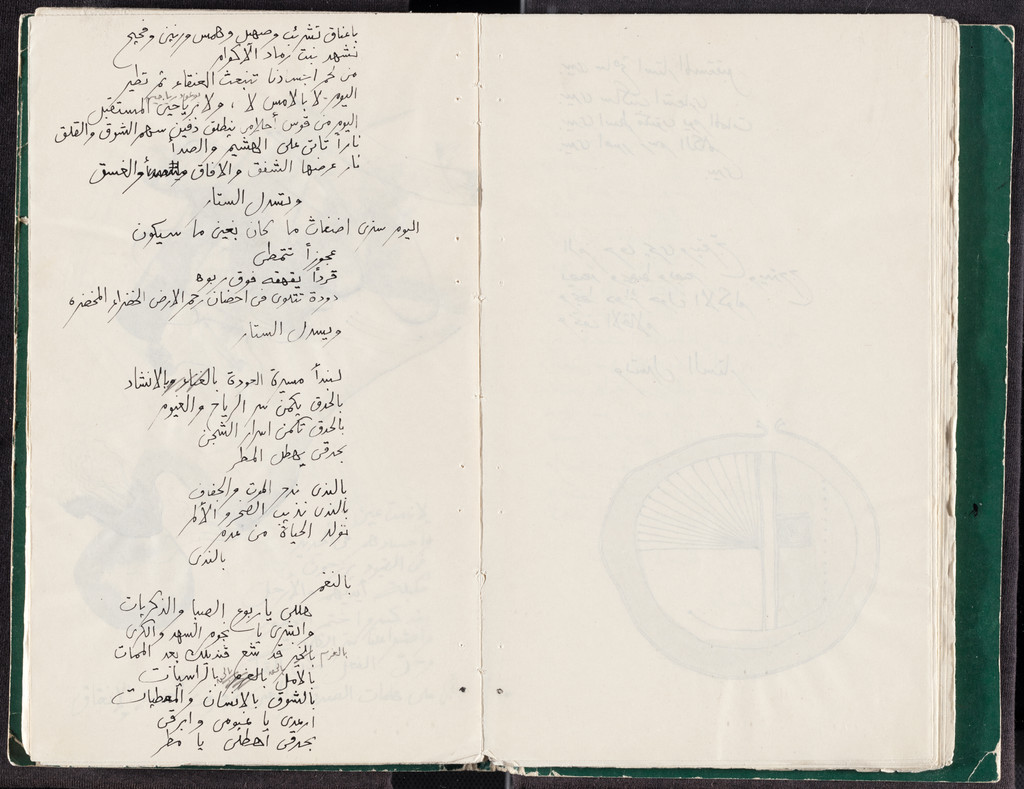 باعناق تشرئب وصهيل وهمس ورنين وفحيح
نشهد نبت رماد الأكوام
من لحم اجسادنا تنبعث العنقاء ثم تطير
اليوم لا بالامس لا ، ولا المستقبل
اليوم من قوس أحلام ينطلق دفين سهم الشوق والقلق
ناراً تأتى على الهشيم والصدأ
نار عرضها الشفق والافاق والغسق
ويسدل الستار
اليوم سنرى اضغاث ما كان بعين ما سيكون
عجوزاً تتمطى
قرداً يقهقه فوق ربوه
دودة تتلوى فى احضان رحم الارض الخضراء المخضره
ويسدل الستار
لنبدأ مسيرة العودة بالغناء وبالانشاد
بالحدق يكمن سر الرياح والغيوم
بالحدق تكمن اسرار الشجن
بحدقى يهطل المطر
بالندى ندحر الموت والجفاف
بالندى نذيب الصخر والألم
نولد الحياة من عدم
بالندى
بالنغم
هللى يا ربوع الصبا والذكريات
وابشرى يا نجوم السهد والكرى
بالعزم بالخير قد شع قنديلك بعد الممات
بالأمل بالعزم بالراسيات
بالشوق بالانسان والمعطيات
ارعدى يا غيومى وابرقى
بحدقى اهطلى يا مطر